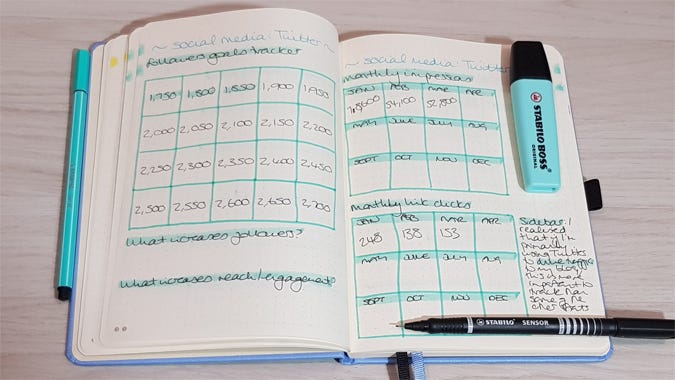 ~ social media: Twitter ~
followers goals tracker
1,750 1,800 1,850 1,900 1,950
2,000 2,050 2,100 2,150 2,200
2,250 2,300 2,350 2,400 2,450
2,500 2,550 2,600 2,650 2,700
What increases followers?
What increases reach/engagement?
~ social media: Twitter
monthly impressions
JAN FEB MAR APR
54,100 52,800
MAY JUNE JULY AUG
SEPT OCT NOV DEC
monthly link clicks
JAN FEB MAR APR
248 138 153
MAY JUNE JULY AUG
SEPT OCT NOV DEC
Sidebar: I
realised
that if I'm
primarily
using Twitter
to drive traffic
to my blog
this is more
important to
track than
some of the
other stats
STABILO BOSS
ORIGINAL
STABILO SENSOR